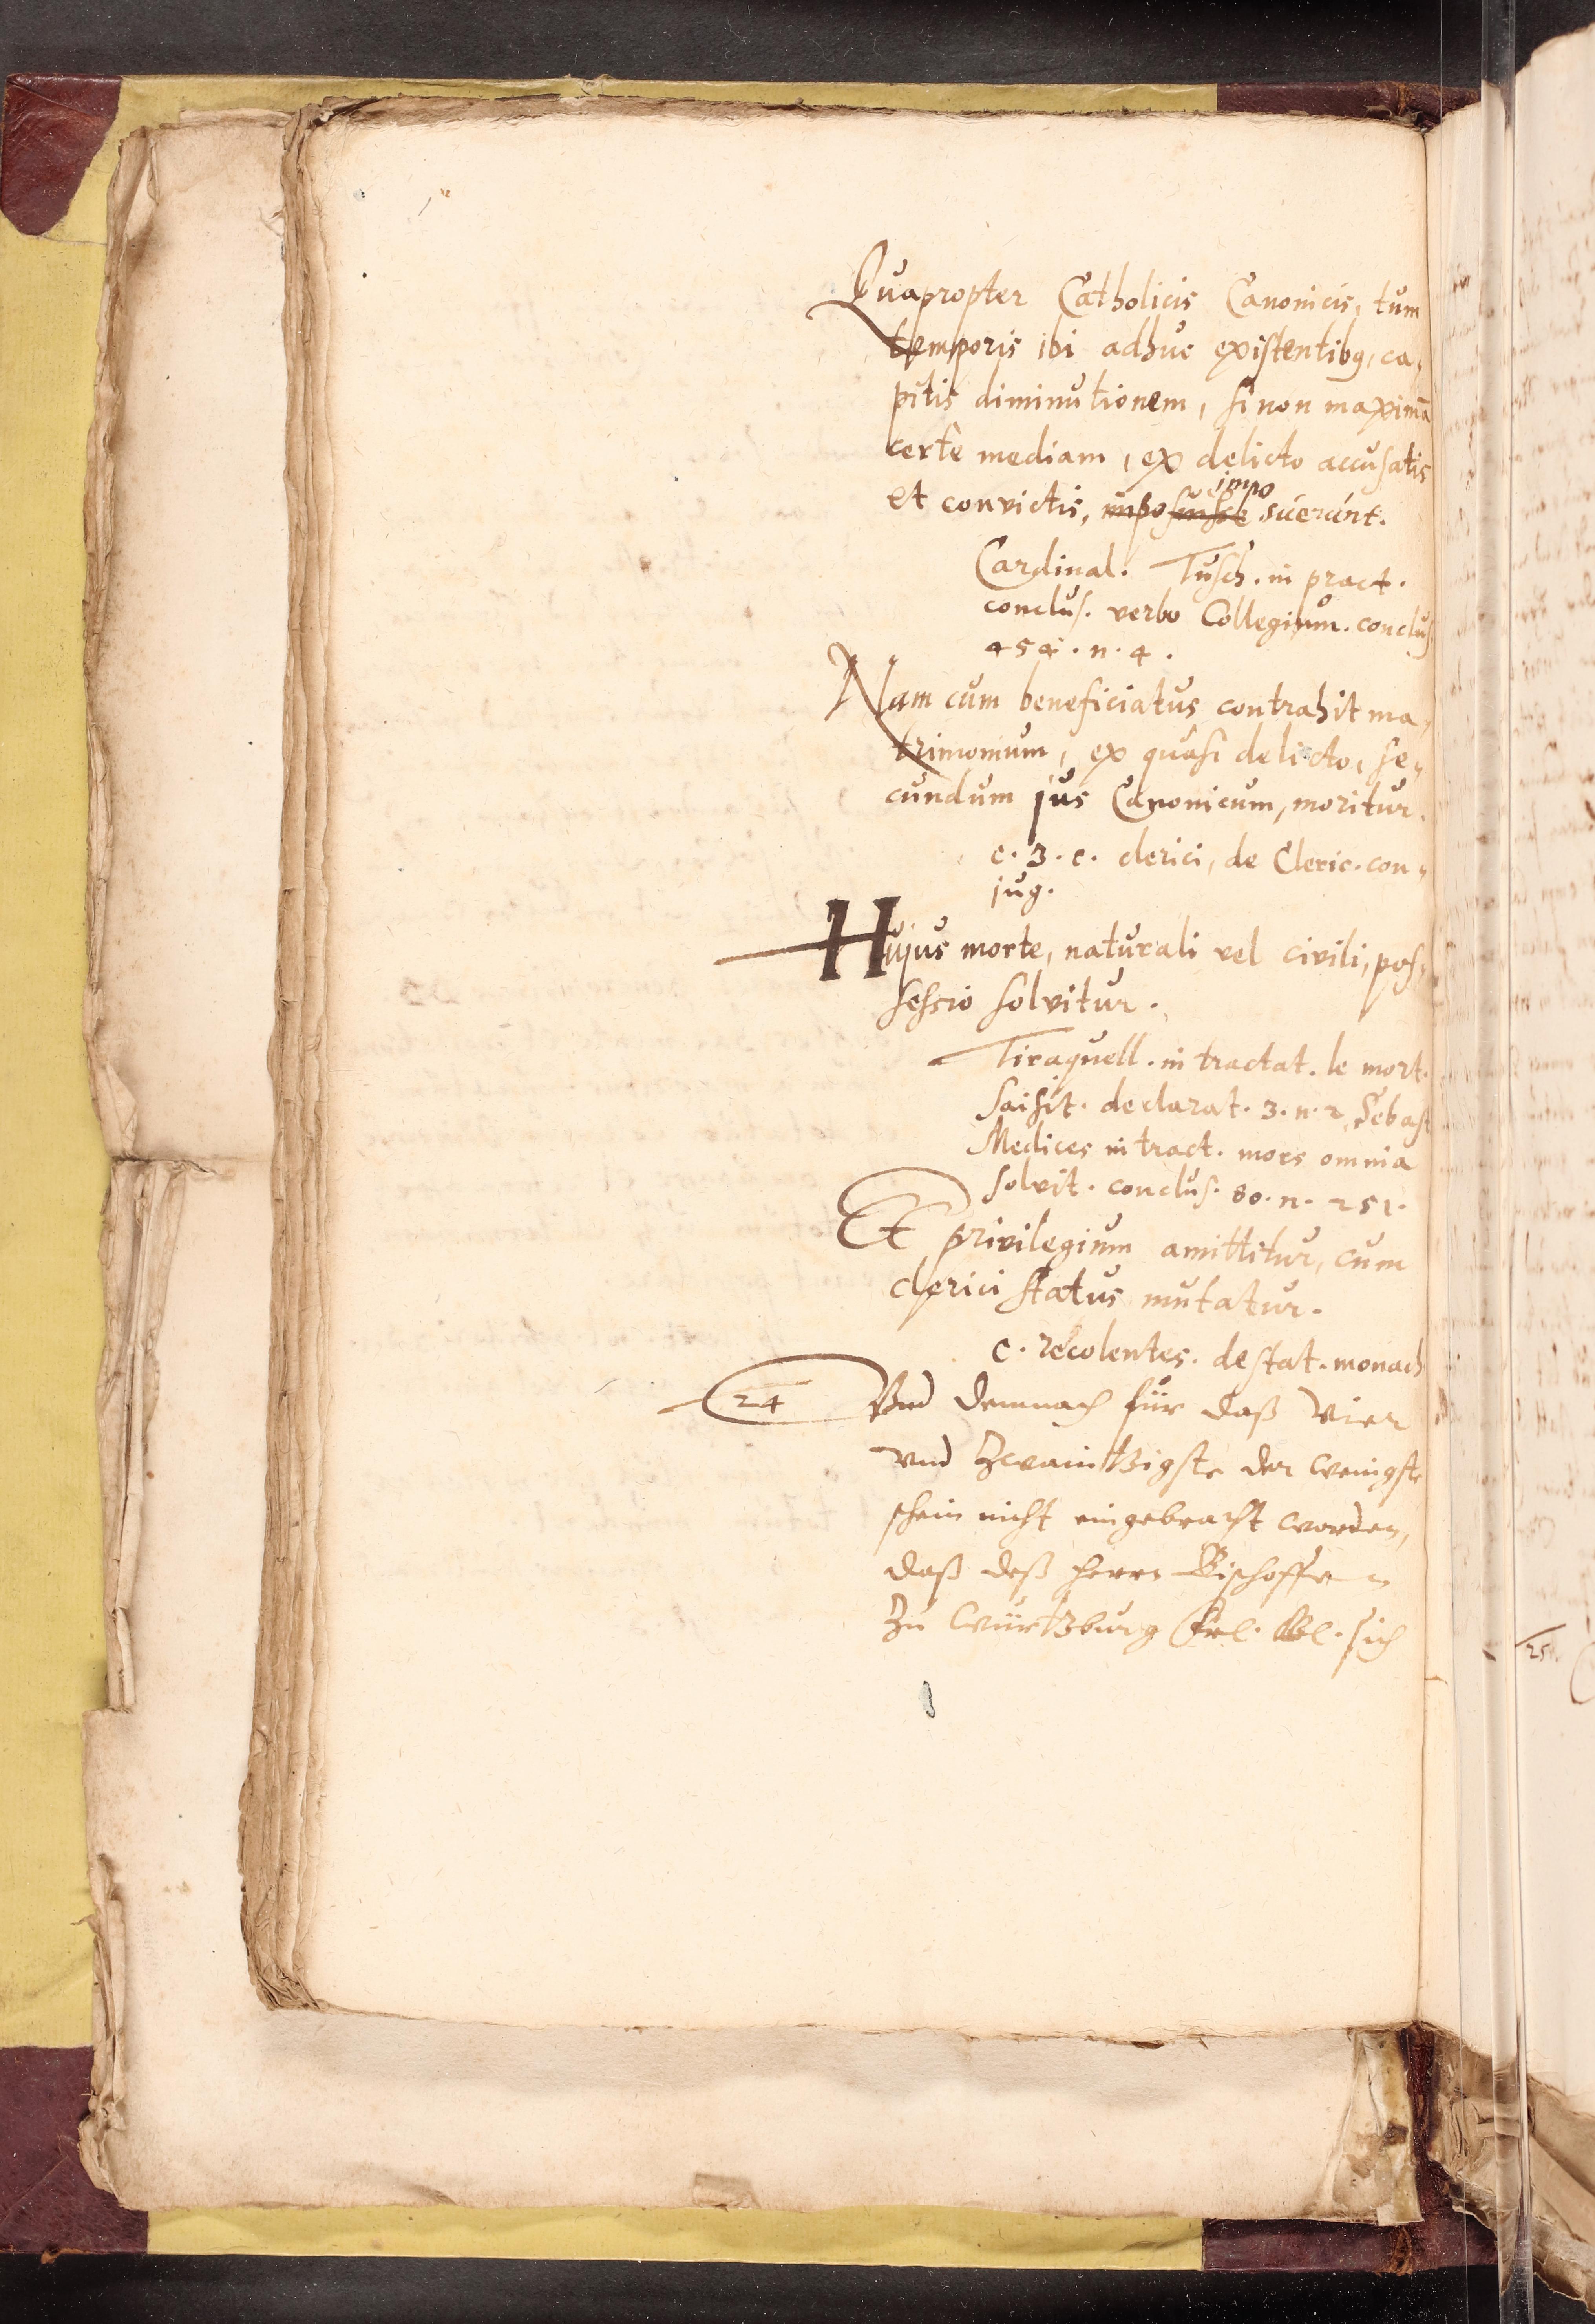 Quapropter Catholicis Canonicis, tum
temporis ibi adhuc existentibq, ca-
pitis diminutionem, si non maximā
certè mediam, ex delicto accusatis
impo
et convictis, suerunt.
Cardinal. Tusch. in pract.
conclus. verbo Collegium. conclus.
454. n. 4.
Nam cum beneficiatus contrahit ma-
trimonium, ex quasi delicto, se-
cundum jus Canonicum, moritur.
c. 3. c. clerici, de Cleric. con-
jug.
Hujus morte, naturali vel civili, pos-
sessio solvitur.
Tiraquell. in tractat. le mort.
saisit. declarat. 3. n. 2, Sebast
Medices in tract. mors omnia
solvit. conclus. 80. n. 251.
Et privilegium amittitur, cum
clerici status mutatur.
c. recolentes. de stat. monach
24 Vnd demnach für daß Vier
vnd Zwaintzigste der wenigste
schein nicht eingebracht worden,
daß deß herrn Bischoffen
zu Würtzburg sich
25.